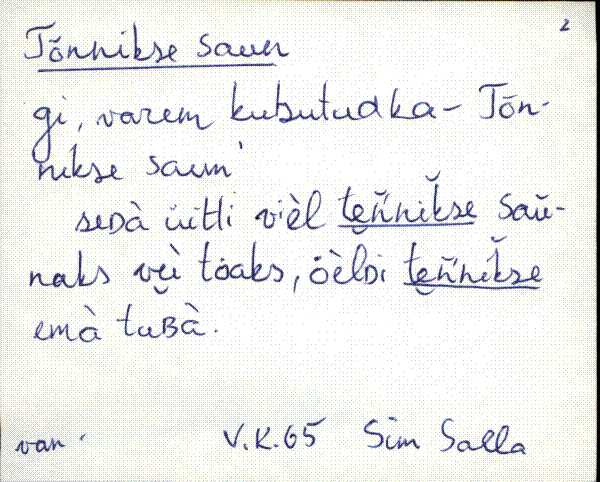 2
Tõnnikse saun
gi, varem kubutudka – Tõn-
nikse saun'
seᴅà üitli vièl tẹn̆'nik̆se saŭ-
naks vẹì tòaks, öèlᴅi tẹn̆'nik̆se
emà tuʙà.
van. V.K.65 Sim Salla